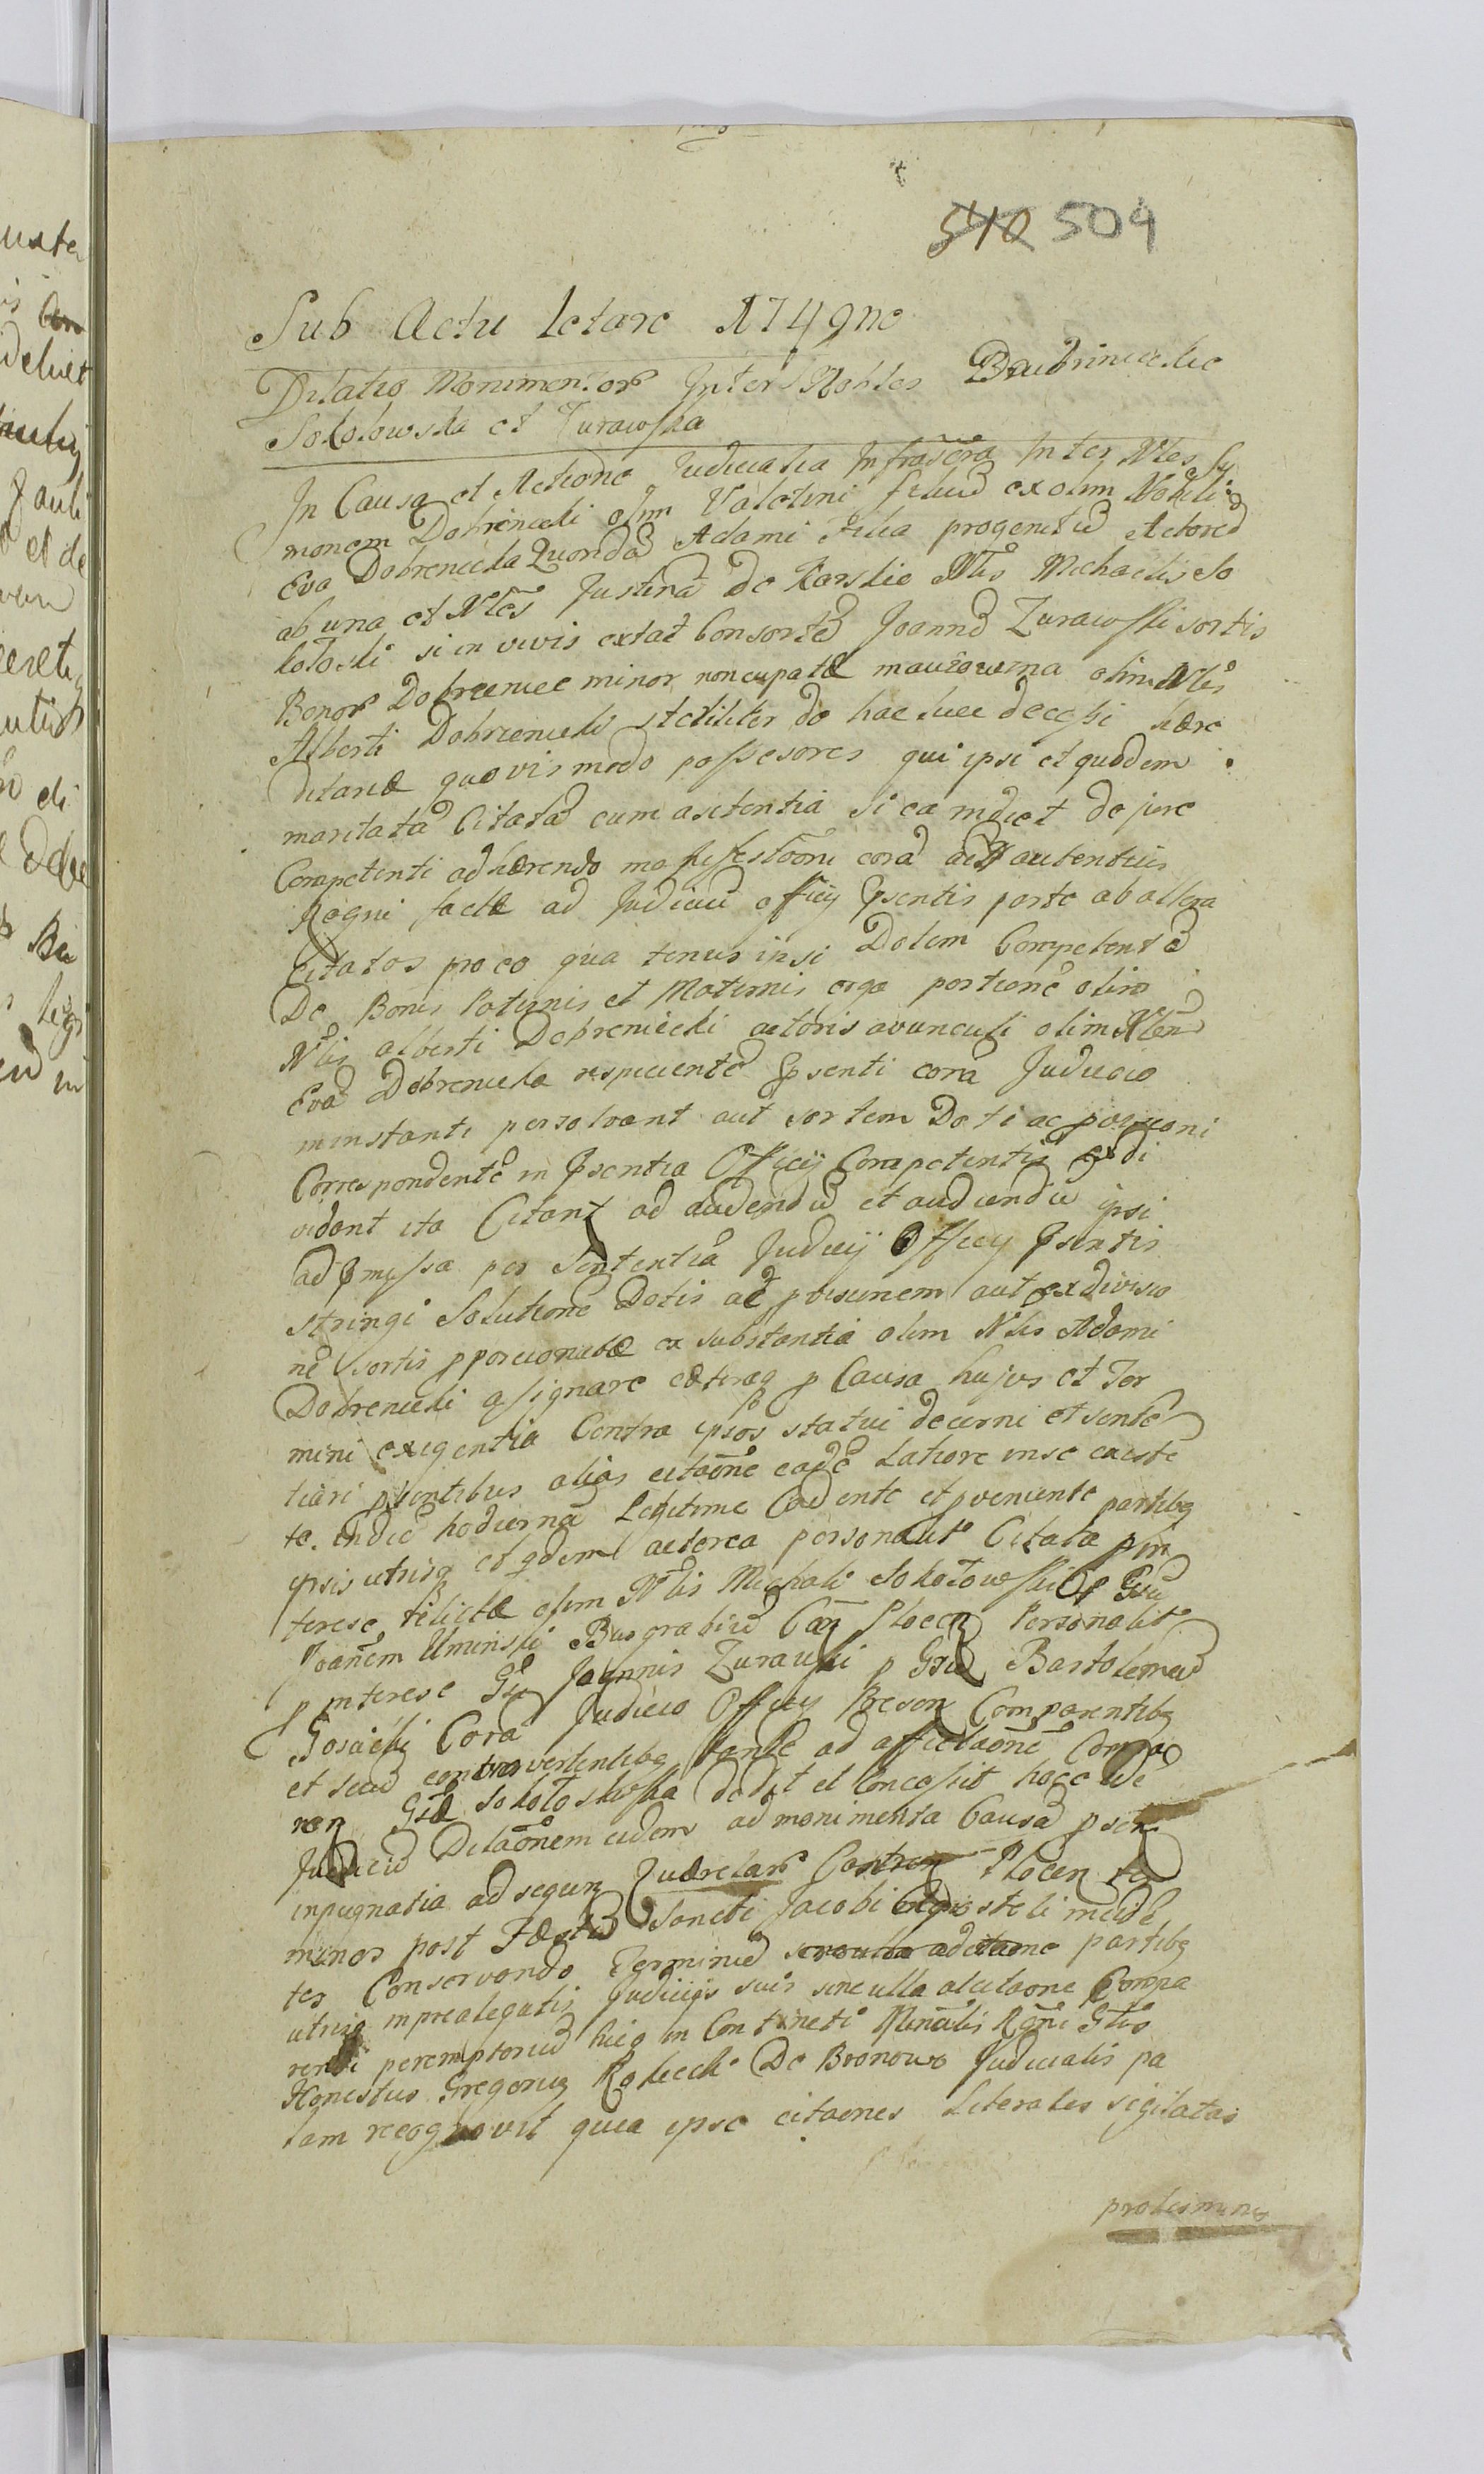 510 504
Sub Actu Letare 1749no
Dilatio Monimentor Inter Nobles Daubrinieckie
Sokolowska et Zurawska
In Causa et Actione Judiciatia Infrascra Inter Nles Sy
monem Dobrinicki olim Valetini filiu ex olim Nobili
Eva Dobrenicka Quonda Adami Filia progenitu Actore
ab una et Nles Justina de Karskie Nlis Michaelis So
kołoski si in vivis extat Consorte Joanne Zurawski sortis
Bonor Dobrenice minor noncupatæ mauzowizna olim Nlis
Alberti Dobrzenicki steriliter de hac luce decessi hære
ditariæ quovis modo possesores qui ipsi et quodem
maritata Citata cum asitentia si ea indiget de jure
Competenti adhærendo mafifestõni cora actis autenticis
Regni factæ ad Judiciu officy Psentis parte ab altera
Citatos pro eo qua tenus ipsi Dotem Competente
De Bonis Paternis et Maternis erga portione olim
Nlis alberti Dobreniecki actoris avunculi olim Nlem
Eva Dobrenicka respiciente Psenti cora Judicio
ininstanti persolvant aut sortem Doti ac porcioni
Correspondente in Psentia Officy Competentis exdi
vidant ita Citant ad videndu et audiendu ipsi
ad Pmissa per Sententia Judicy Officy Psentis
stringi Solutione Dotis ac porcionem aut exdivisio
ne sortis pporcionatæ ex substantia olim Nlis Adami
Dobrenicki assignare cæteraq p Causa hujus et Ter
mini exigentia Contra ipsos statui decerni et sente
tiari plentibus alias citaõne eade Latiore in se existe
te. In die hodierna Legitime Cadente et pveniente partibq
ipsis utrisq et qdem actorea personaliter Citata p in
terese relictæ olim Nlis Michaeli Sokołowski p Gsu
Joañem Uminski Burgrabiu Cañ Plocen Personalit
p interese Gsi Joannis Zurauski p Gsu Bartolemeu
Gosiecki Cora Judicio Officy Presen Comparentibq
et secu controvertentibq parte ad affectaõne Compa
ren Gsæ Sokołoskowska dedit et Concessit hocce ide
Judiciu Dilaõnem eidem ad monimenta Causa psen
inpugnatia ad sequen Quærelar Castren Plocen ter
minos post Fæstu Sancti Jacobi Apostoli incide
tes Conservando Terminu partibq
utrisq inprealegatis Judicijs suis sine ulla alcitaone Compa
rendi peremptoriu huic in Contineti Minĩalis Rgni Gñlis
Honestus Gregorius Robecki De Bronowo Judicialis pa
lam recognovit quia ipse citaones Literales sigilatas